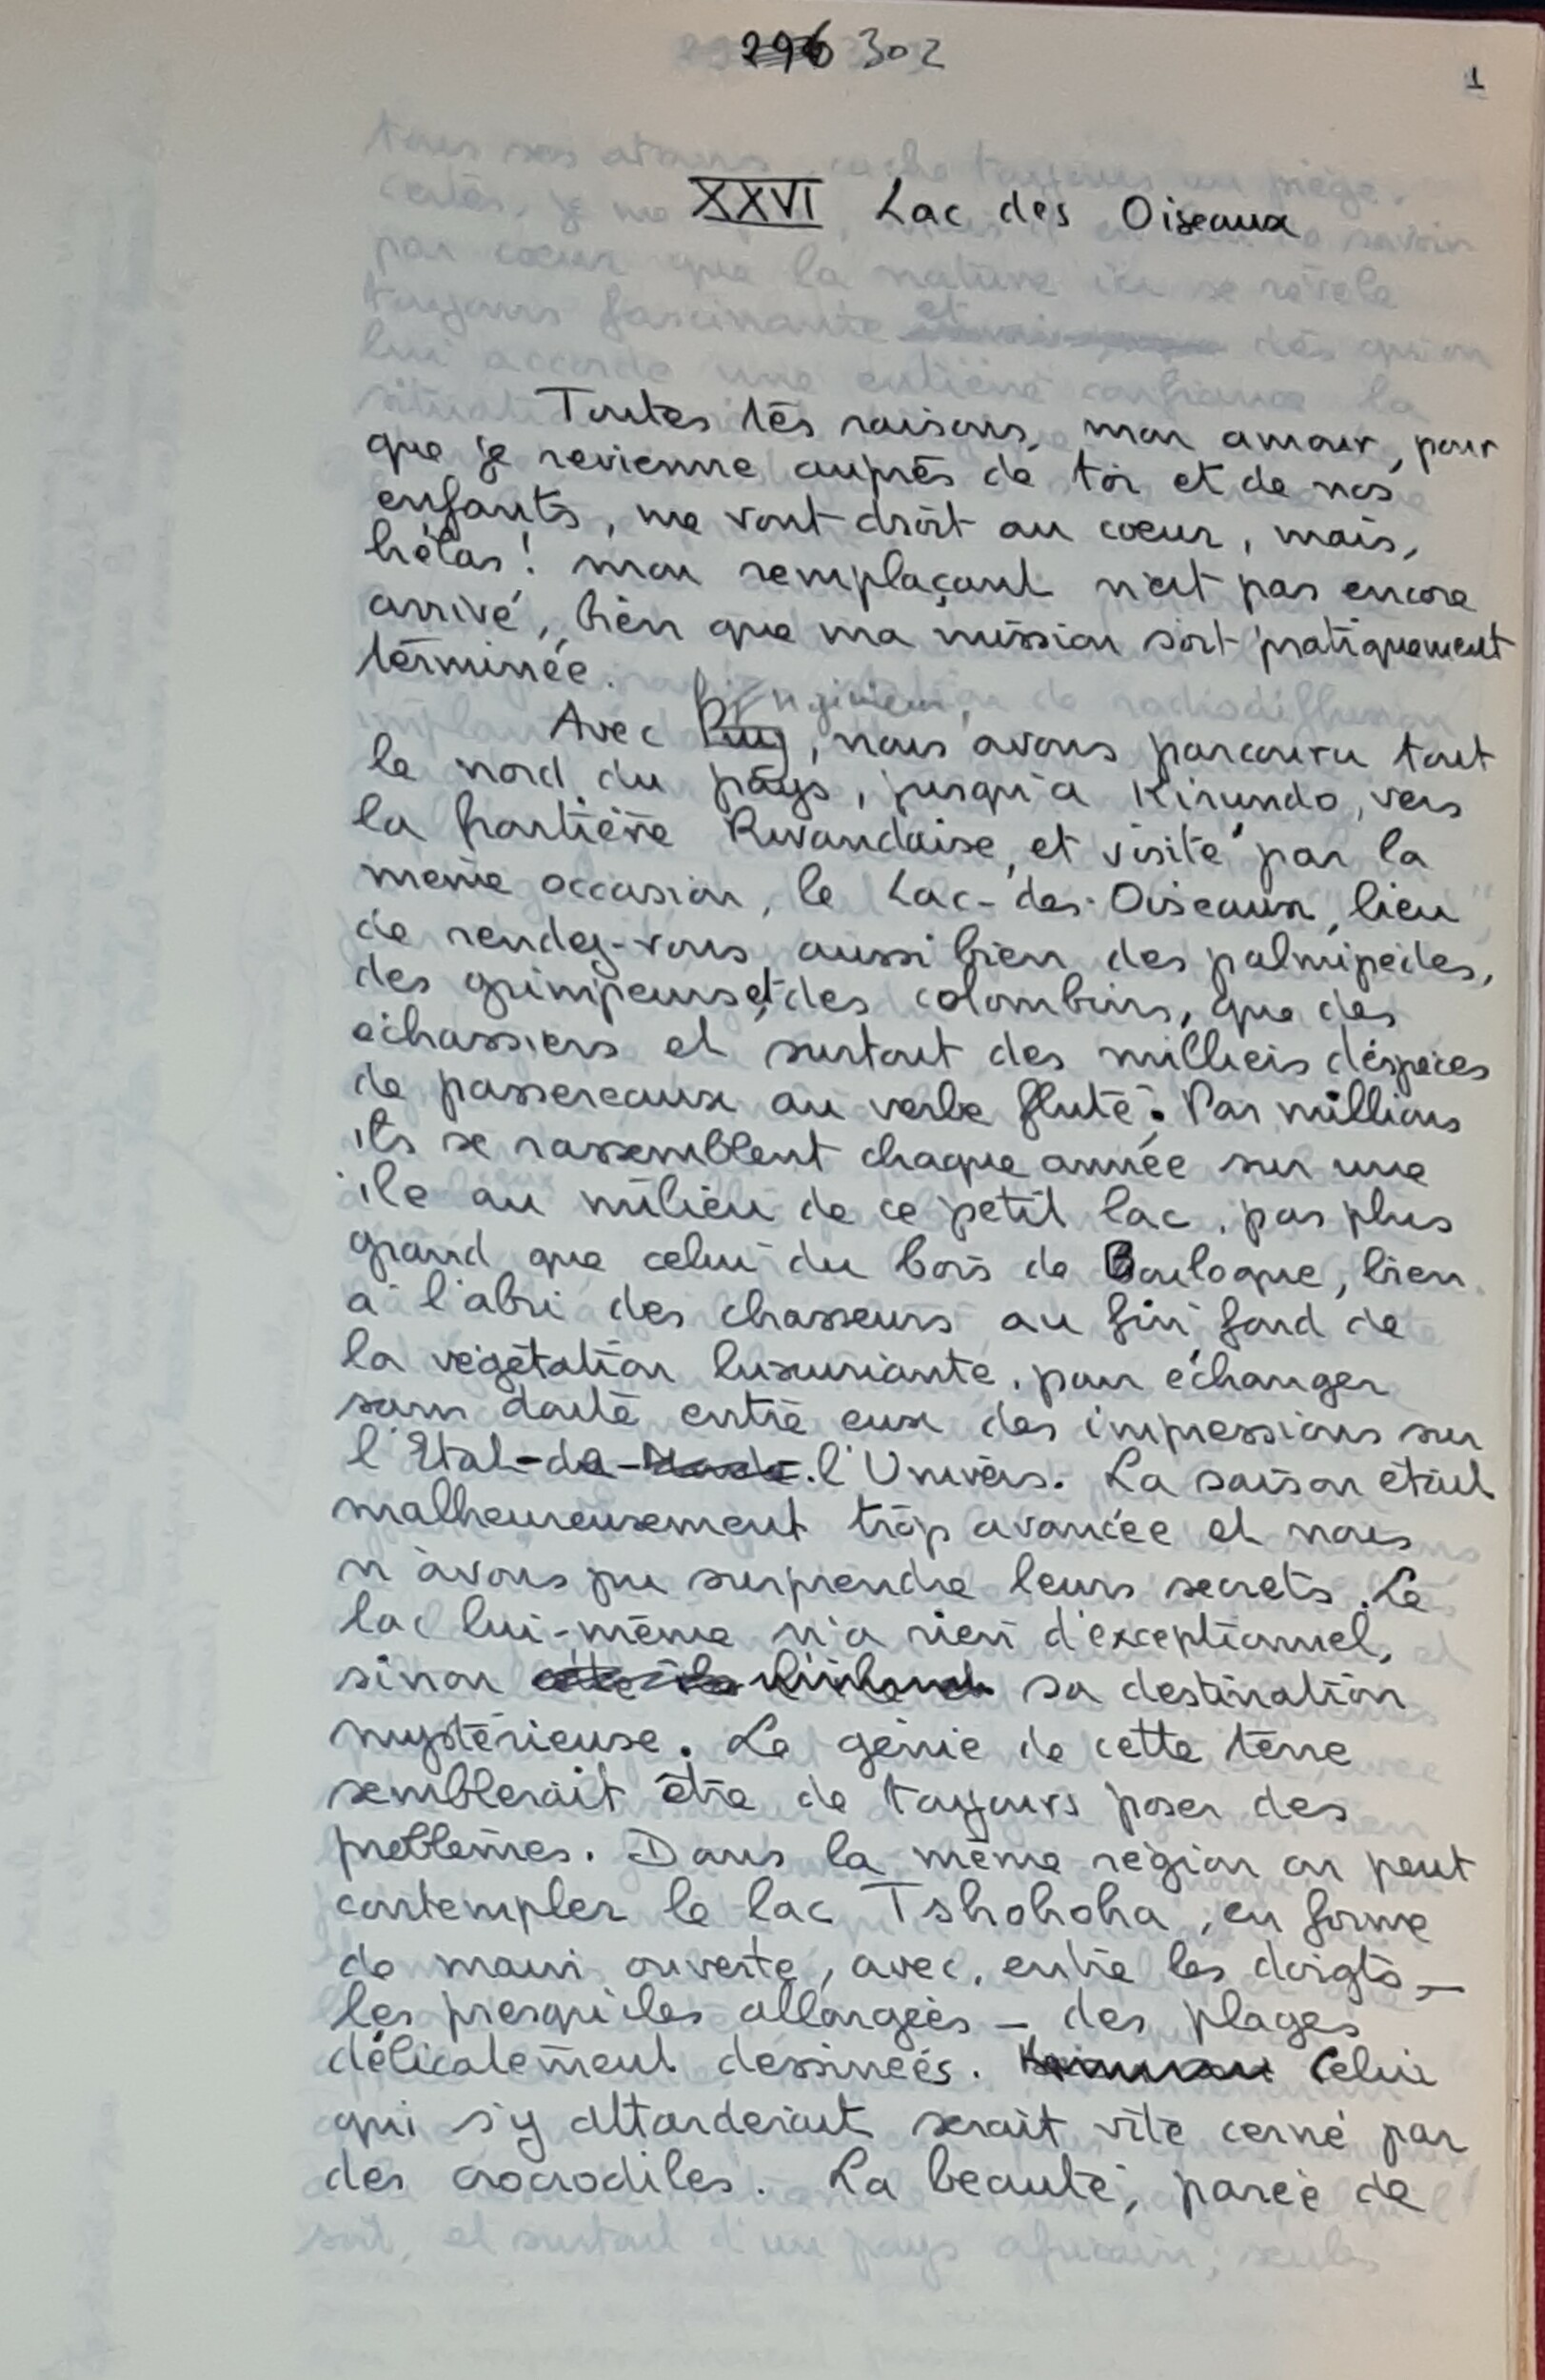 296 302
1
XXVI Lac des Oiseaux
Toutes tes raisons, mon amour, pour
que je revienne auprès de toi et de nos
enfants, me vont droit au coeur, mais,
hélas! mon remplaçant n'est pas encore
arrivé, bien que ma mission soit pratiquement
terminée.
Avec Puy, nous avons parcouru tout
le nord du pays, jusqu'à Kirundo, vers
la frontière Rwandaise, et visité par la
même occasion, le Lac-des-Oiseaux, lieu
de rendez-vous aussi bien des palmipèdes,
des grimpeurs et des colombins, que des
échassiers et surtout des milliers d'espèces
de passereaux au verbe fluté. Par millions
ils se rassemblent chaque année sur une
île au milieu de ce petit lac, pas plus
grand que celui du bois de Boulogne, bien
à l'abri des chasseurs au fin fond de
la végétation luxuriante, pour échanger
sans doute entre eux des impressions sur
l'Etat-de-l'Univers. La saison était
malheureusement trop avancée et nous
n'avons pu surprendre leurs secrets. Le
lac lui-même n'a rien d'exceptionnel,
sinon sa destination
mystérieuse. Le génie de cette terre
semblerait être de toujours poser des
problèmes. Dans la même région on peut
contempler le lac Tshohoha, en forme
de main ouverte, avec, entre les doigts –
les presqu'iles allongées – des plages
délicatement dessinées. Celui
qui s'y attarderait serait vite cerné par
des crocodiles. La beauté, parée de